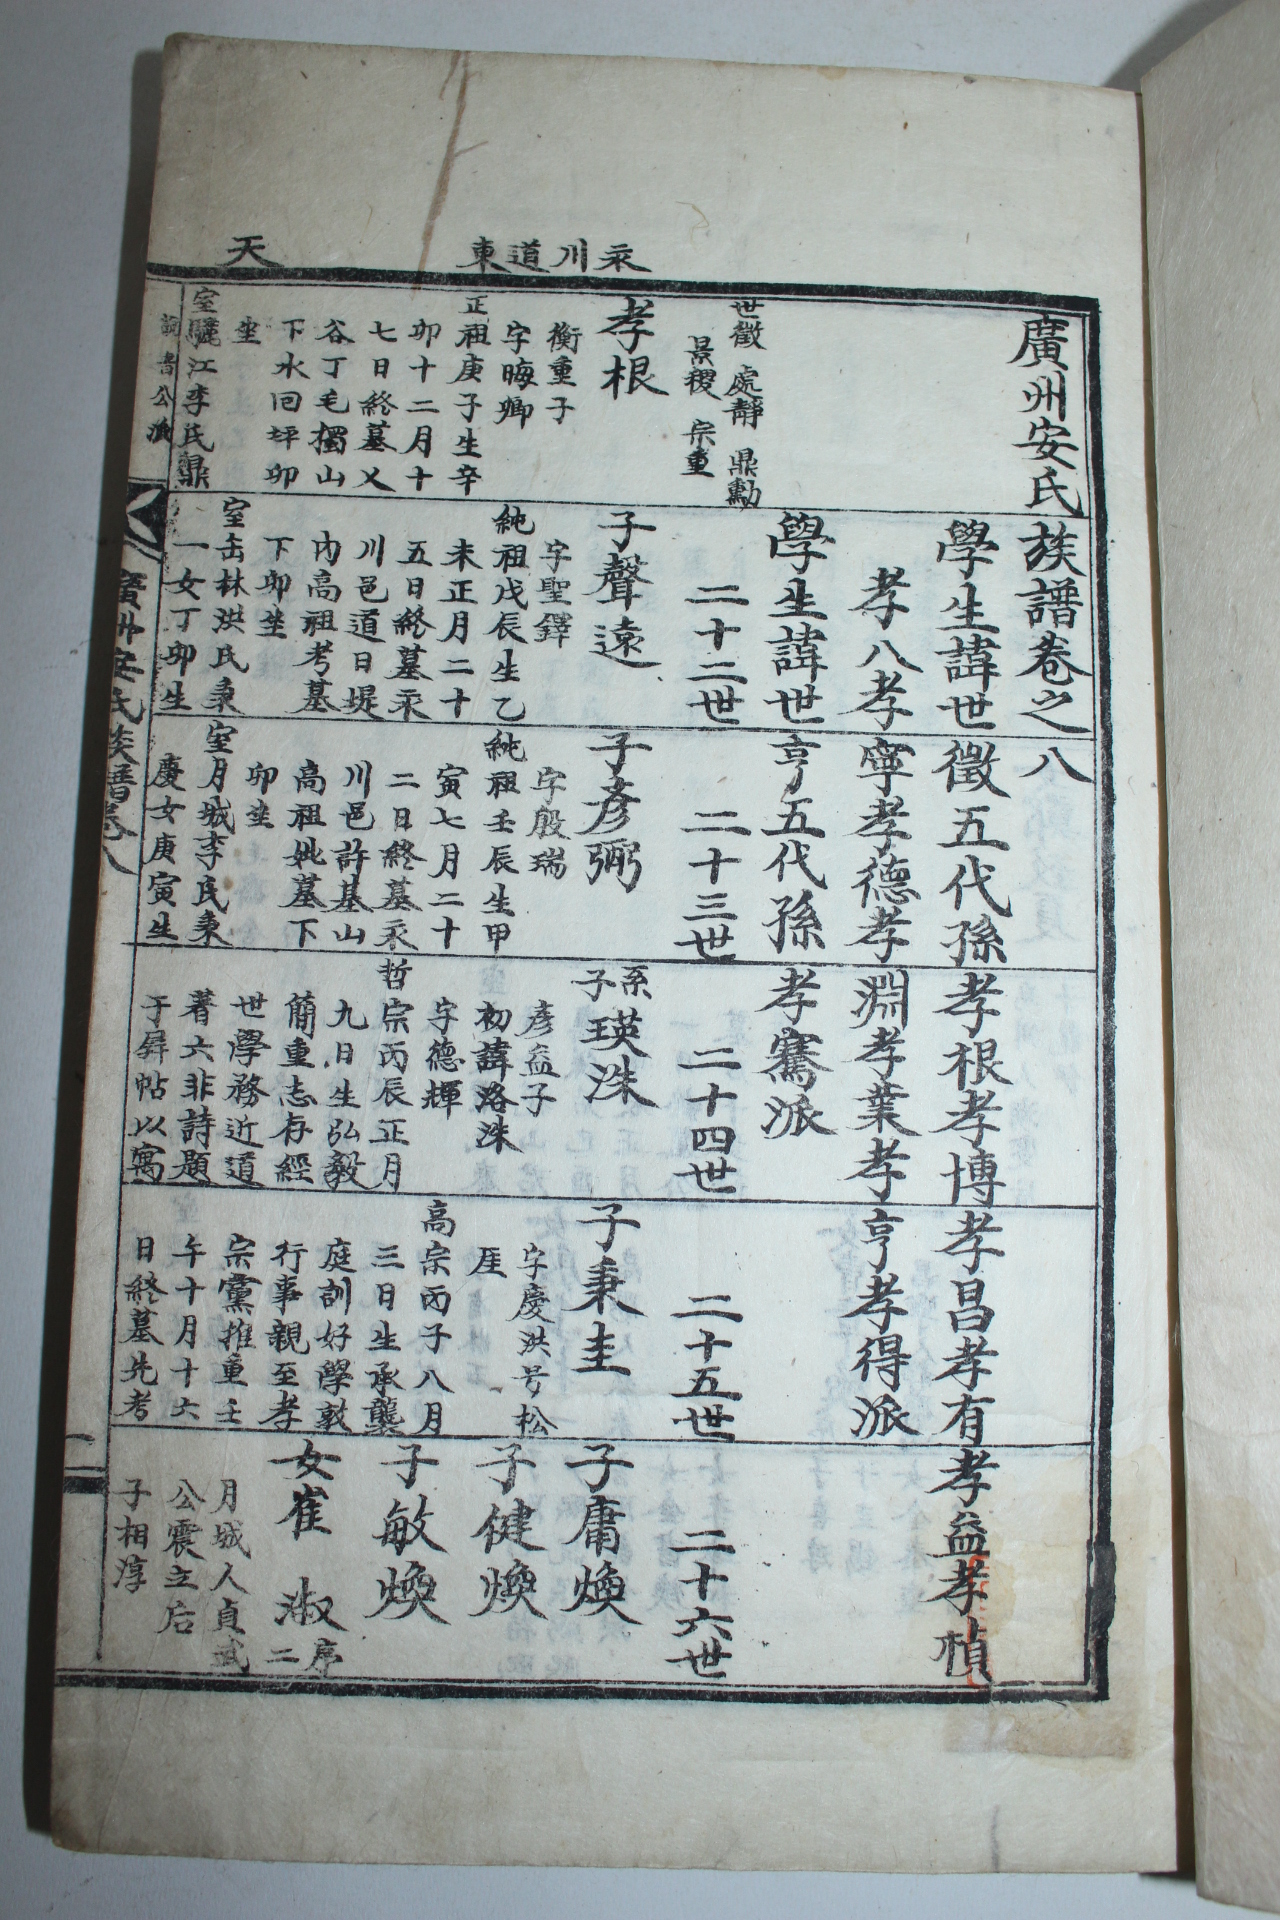 天
承川道東
廣州安氏族譜卷之八
學生諱世徵五代孫孝根孝博孝昌孝有孝益孝楨
孝八孝寧孝德孝淵孝業孝亨孝得派
學生諱世亨五代孫孝騫派
世徵 處靜 鼎勳
景稷 宗重
二十二世
二十三世
二十四世
二十五世
二十六世
孝根
衡重子
字晦卿
正祖庚子生辛
卯十二月十
七日終墓乂
谷丁毛獨山
下水回坪卯
坐
室驪江李氏鼎
子聲遠
字聖鐸
純祖戊辰生乙
未正月二十
五日終墓承
川邑道日堤
內高祖考墓
下卯坐
室缶林洪氏秉
一女丁卯生
子彥弼
字殷瑞
純祖壬辰生甲
寅七月二十
二日終墓承
川邑許基山
高祖妣墓下
卯坐
室月城李氏秉
慶女庚寅生
系子瑛洙
彥益子
初諱洛洙
字德輝
哲宗丙辰正月
九日生弘毅
簡重志存經
世學務近道
著六非詩題
于屛帖以寓
子秉圭
字慶洪号松
厓
高宗丙子八月
三日生承襲
庭訓好學敦
行事親至孝
宗黨推重壬
午十月十六
日終墓先考
子庸煥
子健煥
子敏煥
女崔淑
序二
月城人貞武
公震立后
子相淳
廣州安氏族譜卷八
公派
一